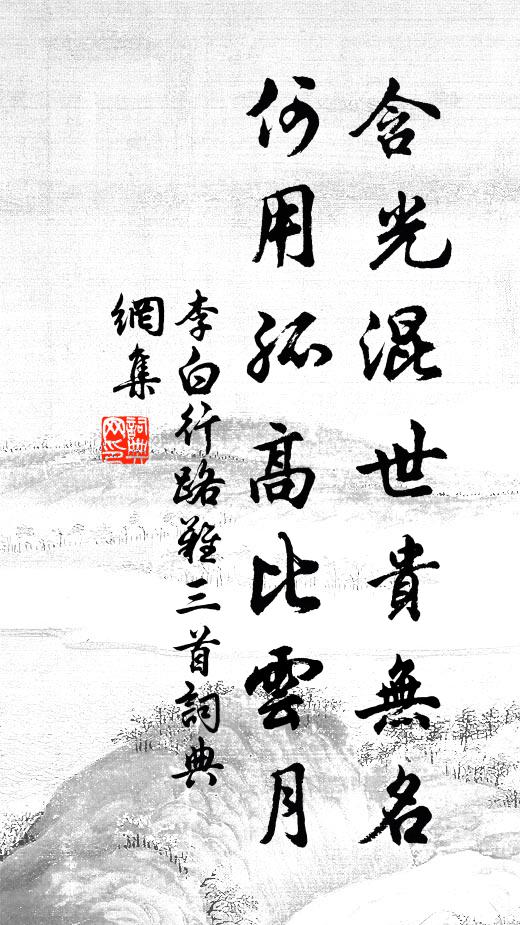 含光混世貴無名
何用孤高比雲月
李白行路難三首詞典
網集
詞典網印